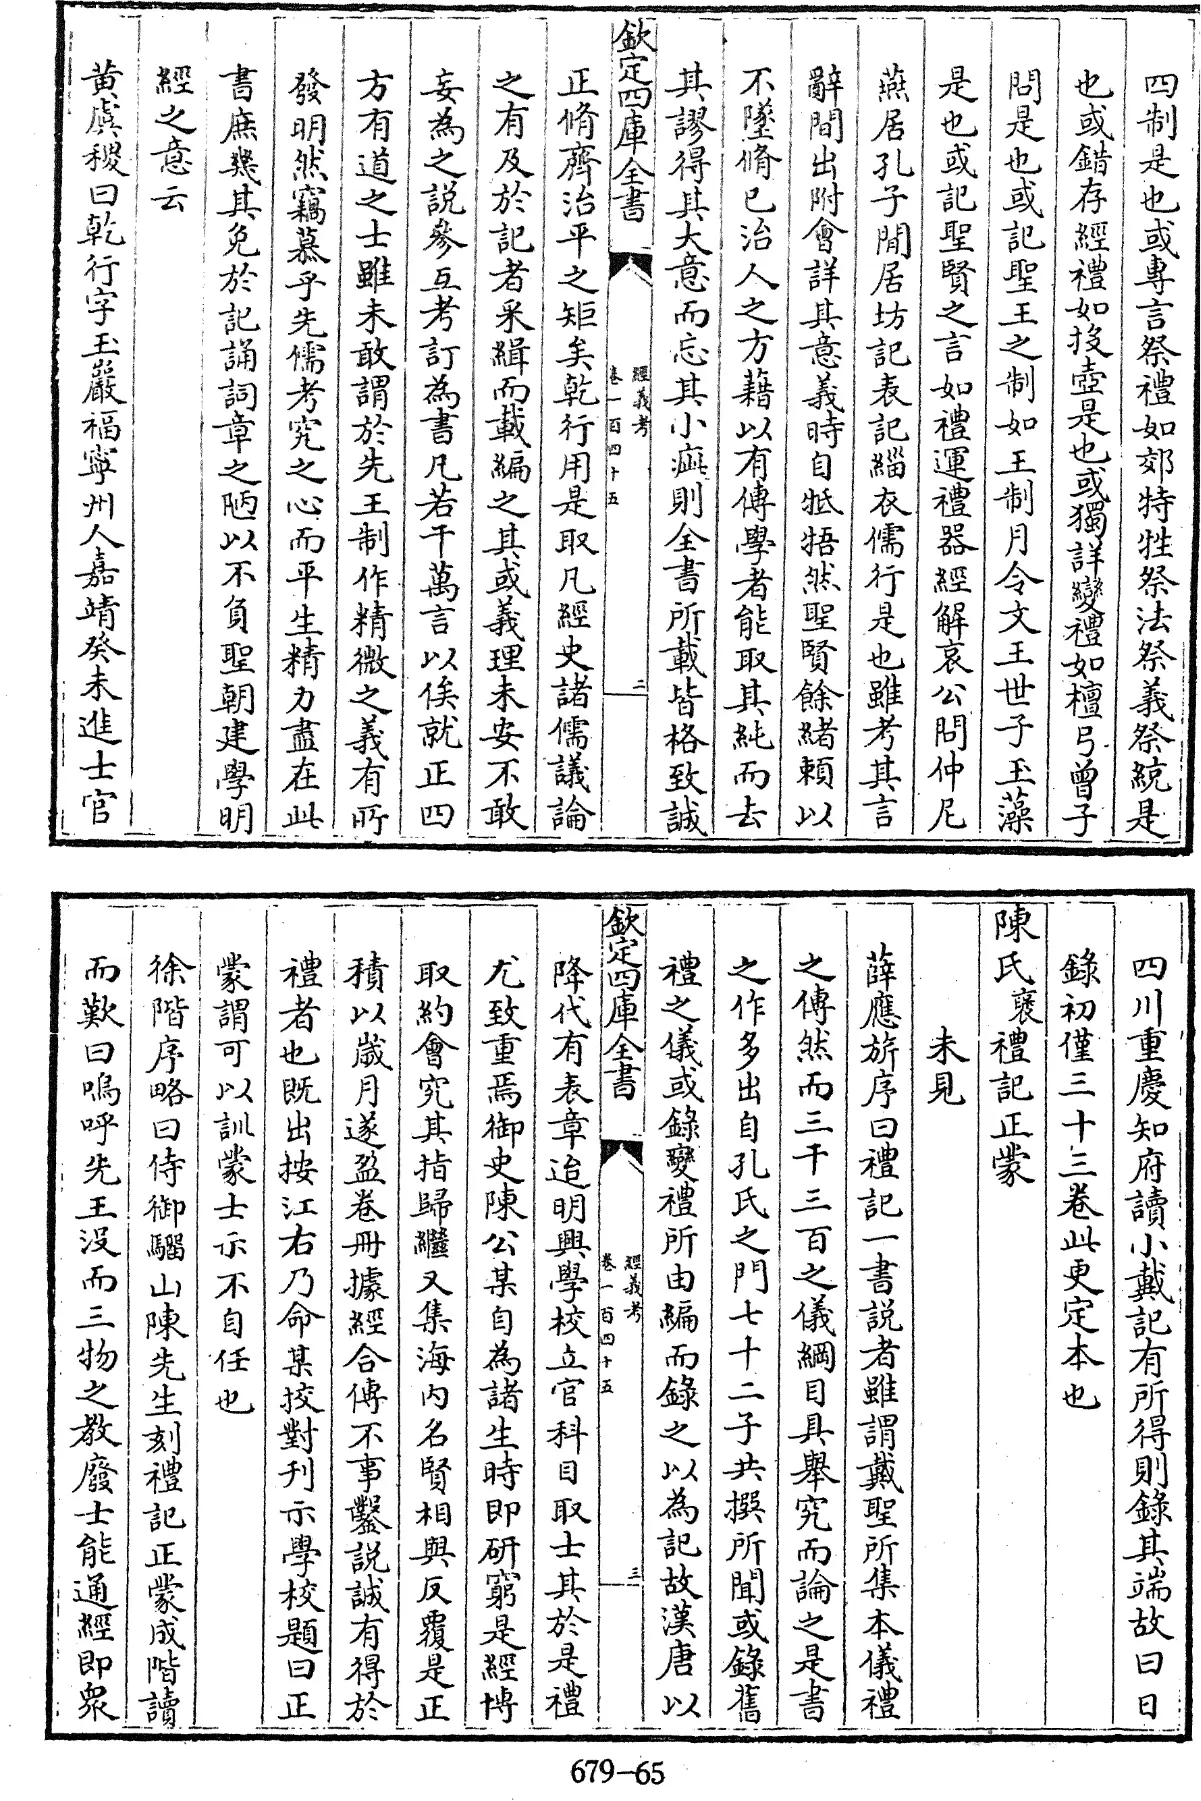 四制是也或專言祭禮如郊特牲祭法祭義祭統是
也或錯存經禮如投壺是也或獨詳變禮如檀弓曾子
問是也或記聖王之制如王制月令文王世子玉藻
是也或記聖賢之言如禮運禮器經解哀公問仲尼
燕居孔子閒居坊記表記緇衣儒行是也雖考其言
辭間出附會詳其意義時自牴牾然聖賢餘緒賴以
不墜脩已治人之方藉以有傳學者能取其純而去
其謬得其大意而忘其小疵則全書所載皆格致誠
欽定四庫全書
經義考
卷一百四十五
二
正脩齊治平之矩矣乾行用是取凡經史諸儒議論
之有及於記者采緝而載編之其或義理未安不敢
妄為之說參互考訂為書凡若干萬言以俟就正四
方有道之士雖未敢謂於先王制作精微之義有所
發明然竊慕乎先儒考究之心而平生精力盡在此
書庶幾其免於記誦詞章之陋以不負聖朝建學明
經之意云
黃虞稷曰乾行字玉巖福寧州人嘉靖癸未進士官
四川重慶知府讀小戴記有所得則錄其端故曰日
錄初僅三十三卷此更定本也
陳氏襃禮記正蒙
未見
薛應旂序曰禮記一書說者雖謂戴聖所集本儀禮
之傳然而三千三百之儀綱目具舉究而論之是書
之作多出自孔氏之門七十二子共撰所聞或錄舊
禮之儀或錄變禮所由編而錄之以為記故漢唐以
欽定四庫全書
經義考
卷一百四十五
三
降代有表章迨明興學校立官科目取士其於是禮
尤致重焉御史陳公某自為諸生時即研窮是經博
取約會究其指歸繼又集海內名賢相與反覆是正
積以歲月遂盈卷冊據經合傳不事鑿說誠有得於
禮者也既出按江右乃命某挍對刊示學校題曰正
蒙謂可以訓蒙士示不自任也
徐階序略曰侍御騮山陳先生刻禮記正蒙成階讀
而歎曰嗚呼先王沒而三物之教廢士能通經即衆
679—65